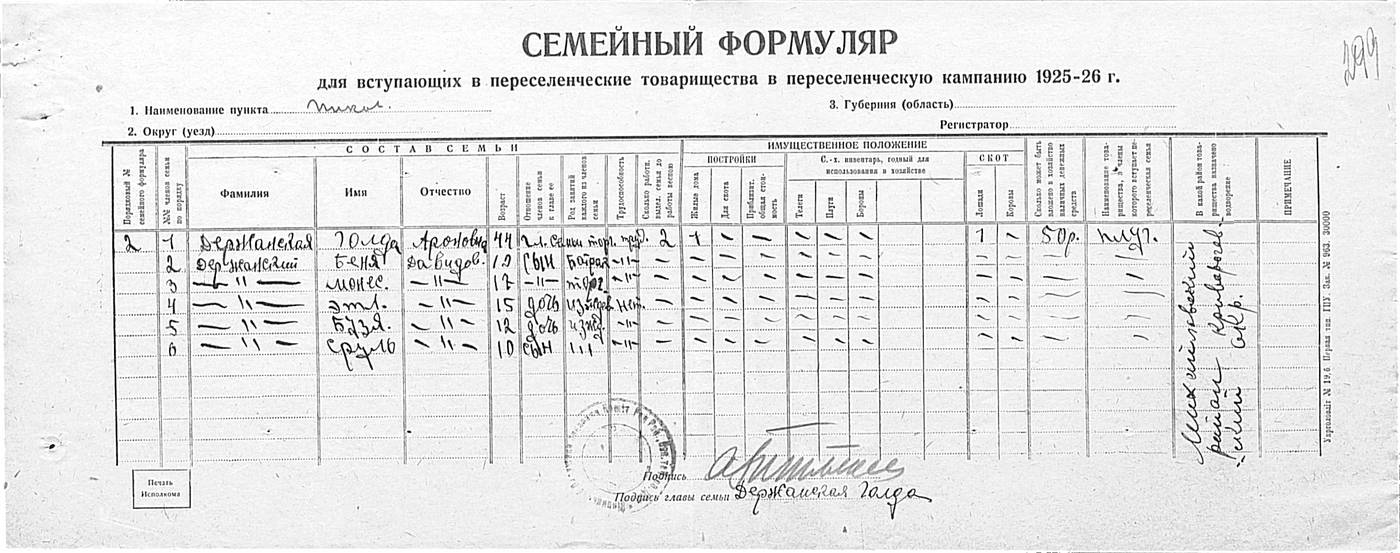 299
СЕМЕЙНЫЙ ФОРМУЛЯР
для вступающих в переселенческие товарищества в переселенческую кампанию 1925-26 г.
1. Наименование пункта
3. Губерния (область)
2. Округ (уезд)
Регистратор
Порядковый № семейного формуляра
№№ членов семьи по порядку
СОСТАВ СЕМЬИ
Фамилия
Имя
Отчество
Возраст
Отношение членов семьи к главе ее
Род занятий каждого из членов семьи
Трудоспособность
Сколько работн. выдел. семья до работы весною
ИМУЩЕСТВЕННОЕ ПОЛОЖЕНИЕ
ПОСТРОЙКИ
Жилые дома
Для скота
Приблизит. общая стоимость
С.-х. инвентарь, годный для использования в хозяйстве
Телеги
Плуги
Бороны
СКОТ
Лошади
Коровы
Сколько может быть вложено в хозяйство наличных денежных средств
Наименование товарищества, в члены которого вступает переселенческая семья
В какой район товарищества назначено водворение
ПРИМЕЧАНИЕ
2 1 Держанская Голда Ароновна 44 гл. семьи торг. труд. 2 1 – – – – – 1 – 50р. плуг.
2 Держанский Беня Давидов. 19 сын батрак –"– – – – – – – – – – "
3 –"– Монес. 17 –"– торг. –"– – – – – – – – – – "
4 –"– Этл. 15 дочь иждев нет. – – – – – – – – – "
5 –"– Бузя. 12 дочь ижд. –"– – – – – – – – – – "
6 –"– Сруль 10 сын –"– – – – – – – – – – "
Михайловский
район Криворожс
:ский окр.
Укрголовліт № 19,6. Первая тип. ГПУ. Зак. № 963. 30000
Печать
Исполкома
Подпись
Подпись главы семьи Держанская Голда